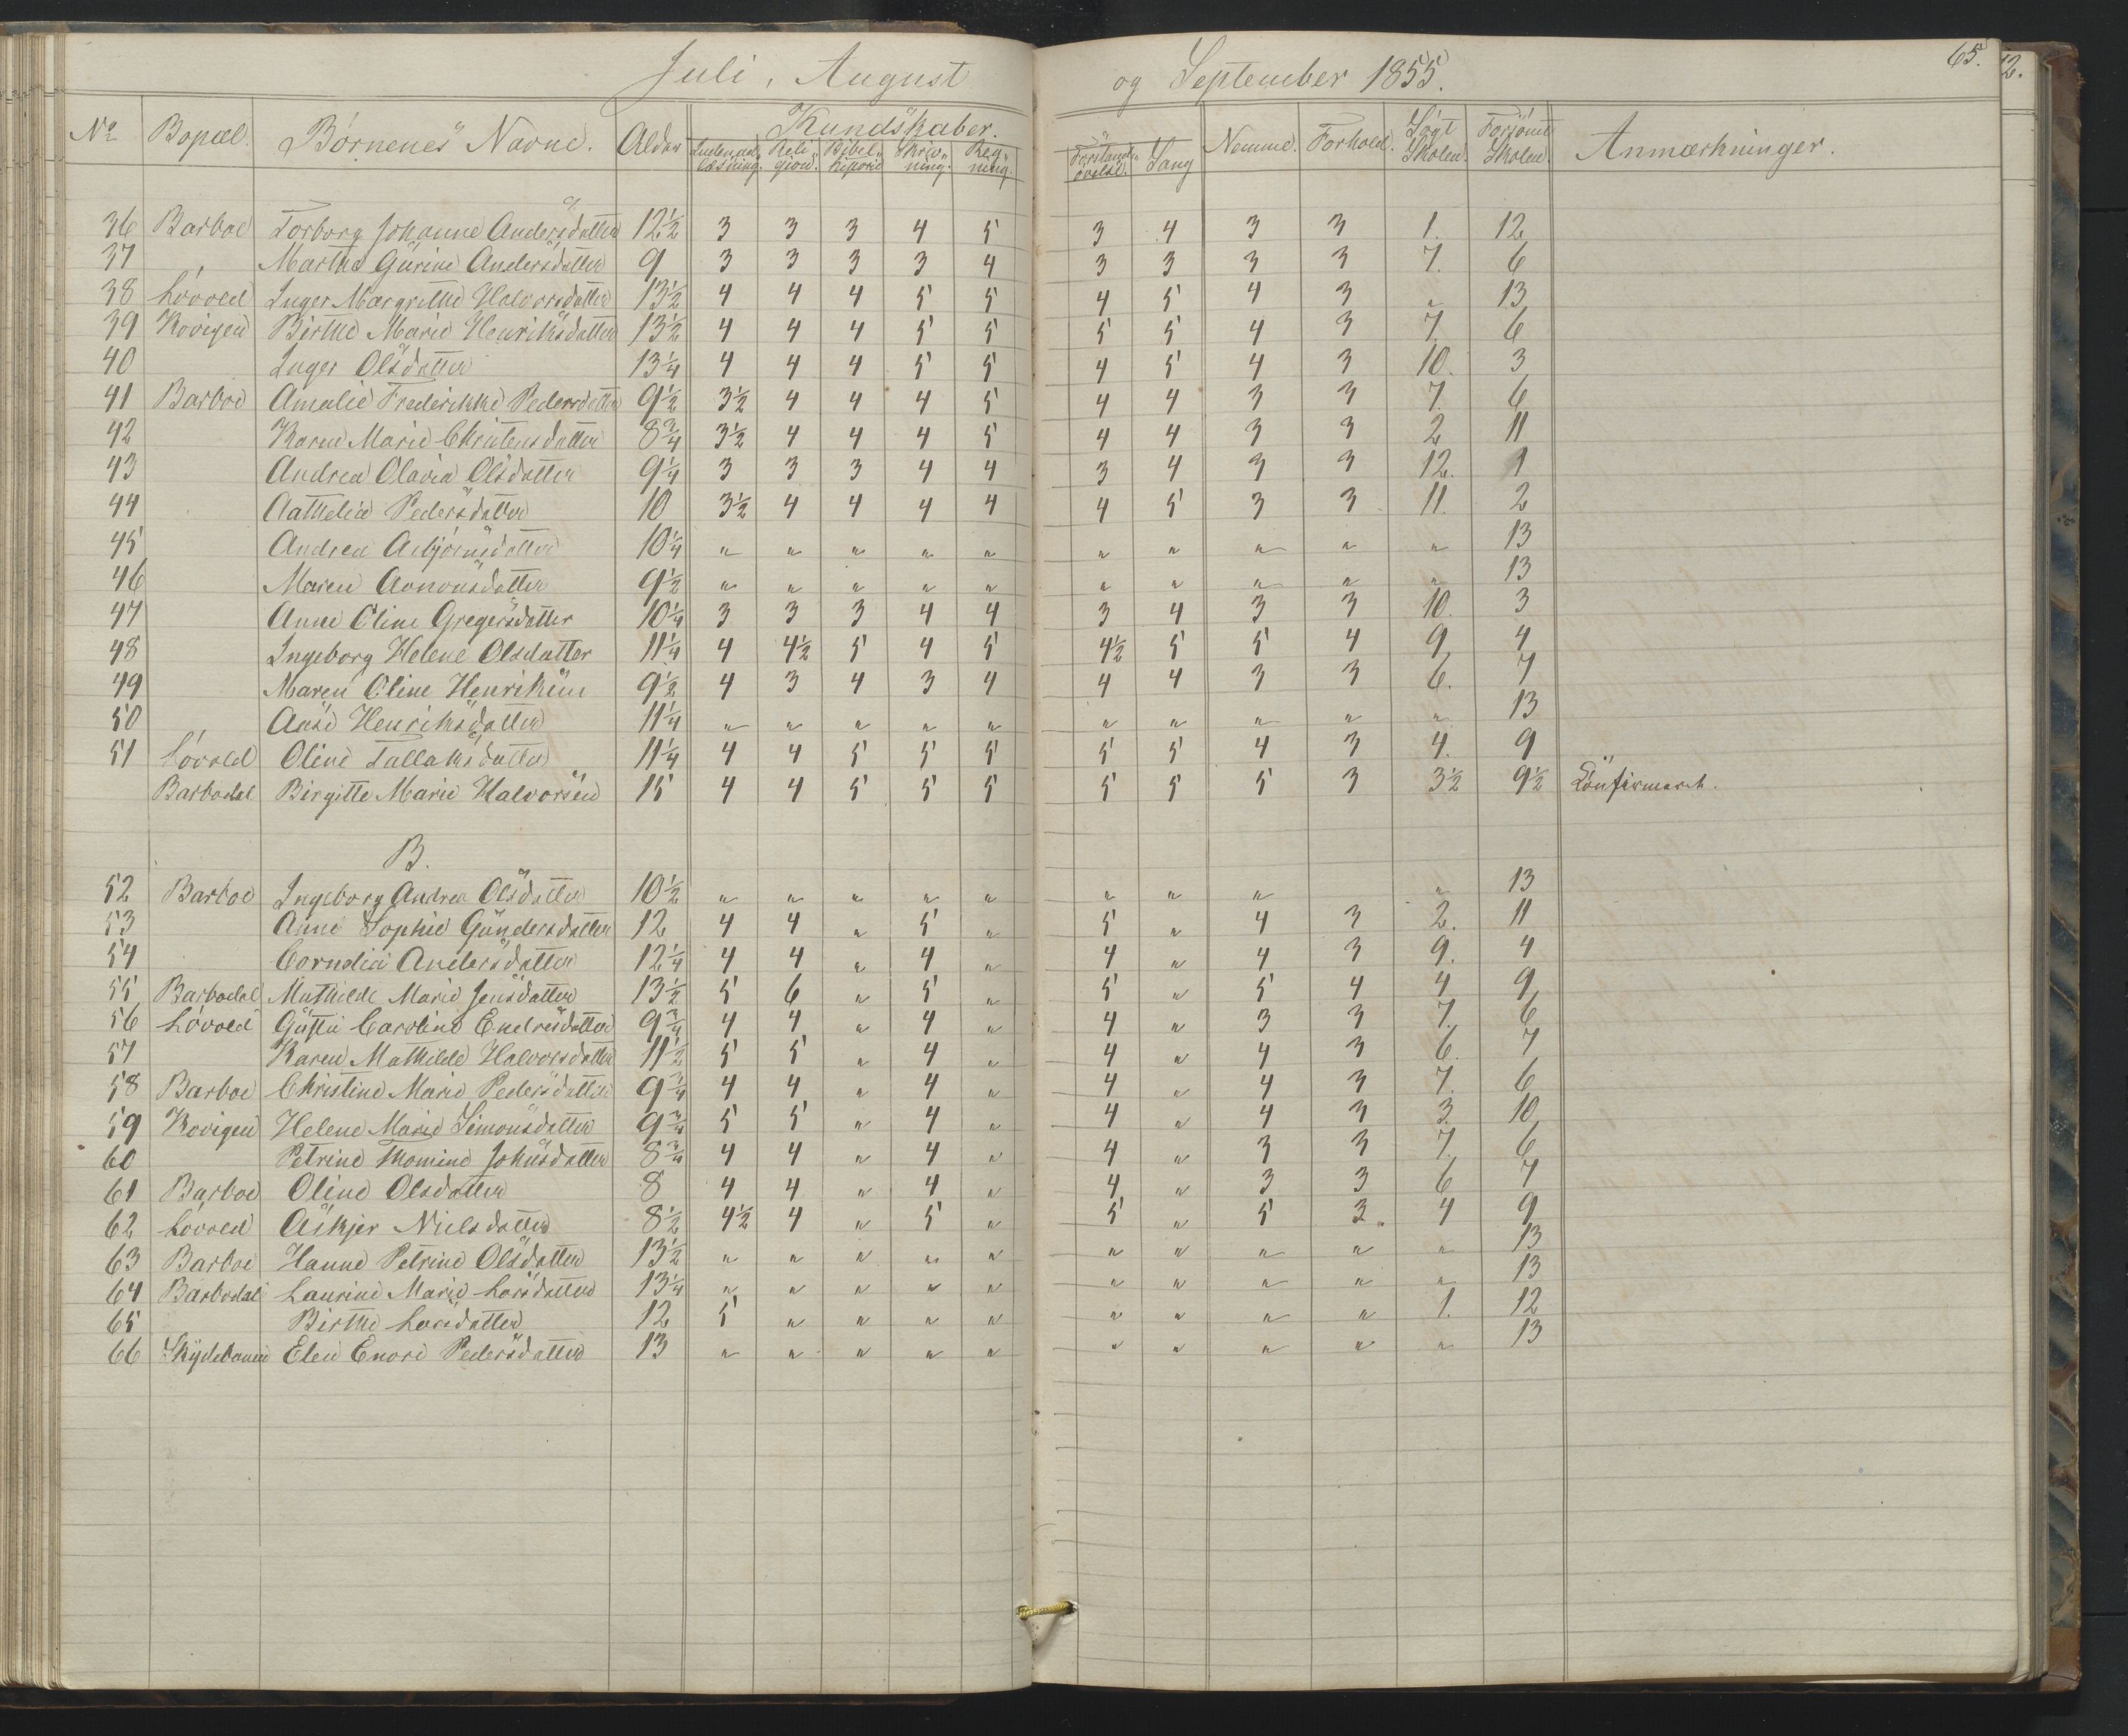 Juli, August og September 1855. 65.
12.
No Bopæl. Börnenes Navne. Alder Kundskaber. Nemme. Forhold. Søgt Skolen. Forsömt Skolen. Anmærkninger.
læsning. Reli„gion. Bibel„historie Skriv„ning. Reg„ning. Forstands„øvelse. Sang
36 Barboe Torborg Johanne Andersdatter 12½ 3 3 3 4 5 3 4 3 3 1. 12
37 Marthe Gurine Andersdatter 9 3 3 3 3 4 3 3 3 3 7. 6
38 Løvold Inger Margrethe Halvorsdatter 13½ 4 4 4 5 5 4 5 4 3 „ 13
39 Kovigen Birthe Marie Henriksdatter 13½ 4 4 4 5 5 5 5 4 3 7. 6
40 Inger Olsdatter 13¼ 4 4 4 5 5 4 5 4 3 10. 3
41 Barboe Amalie Frederikke Pedersdatter 9½ 3½ 4 4 4 5 4 4 3 3 7. 6
42 Karen Marie Christensdatter 8¾ 3½ 4 4 4 5 4 4 3 3 2 11
43 Andrea Olavia Olsdatter 9¼ 3 3 3 4 4 3 4 3 3 12. 1
44 Aathelie Pedersdatter 10 3½ 4 4 4 4 4 5 3 3 11. 2
45 Andrea Asbjörnsdatter 10¼ „ „ „ „ „ „ „ „ „ „ 13
46 Maren Aanonsdatter 9½ „ „ „ „ „ „ „ „ „ „ 13
47 Anne Eline Gregersdatter 10¼ 3 3 3 4 4 3 4 3 3 10. 3
48 Ingeborg Helene Olsdatter 11¼ 4 4½ 5 4 5 4½ 5 5 4 9 4
49 Maren Oline Henriksen 9½ 4 3 4 3 4 4 4 3 3 6. 7
50 Aase Henriksdatter 11¼ „ „ „ „ „ „ „ „ „ „ 13
51 Løvold Oline Tallaksdatter 11¼ 4 4 5 5 5 5 5 4 3 4. 9
Barbodal Birgitte Marie Halvorsen 15 4 4 5 5 5 5 5 5 3 3½ 9½ Confirmeret.
B.
52 Barboe Ingeborg Andrea Olsdatter 10½ „ „ „ „ „ „ „ „ „ 13
53 Anne Sophie Gundersdatter 12 4 4 „ 5 „ 5 „ 4 3 2. 11
54 Cornelia Andersdatter 12¼ 4 4 „ 4 „ 4 „ 4 3 9. 4
55 Barbodal Mathilde Marie Jensdatter 13½ 5 6 „ 5 „ 5 „ 5 4 4 9
56 Løvold Gustu Caroline Endresdatter 9¾ 4 4 „ 4 „ 4 „ 3 3 7. 6
57 Karen Mathilde Halvorsdatter 11½ 5 5 „ 4 „ 4 „ 4 3 6. 7
58 Barboe Christine Marie Pedersdatter 9¾ 4 4 „ 4 „ 4 „ 4 3 7. 6
59 Kovigen Helene Marie Simonsdatter 9¾ 5 5 „ 4 „ 4 „ 4 3 3. 10
60 Petrine Thomine Johnsdatter 8¾ 4 4 „ 4 „ 4 „ 3 3 7. 6
61 Barboe Oline Olsdatter 8 4 4 „ 4 „ 4 „ 3 3 6 7
62 Løvold Askjer Nielsdatter 8½ 4½ 4 „ 5 „ 5 „ 5 3. 4 9
63 Barboe Hanne Petrine Olsdatter 13½ „ „ „ „ „ „ „ „ „ „ 13
64 Barbodal Laurine Marie Larsdatter 13¼ „ „ „ „ „ „ „ „ „ „ 13
65 Birthe Larsdatter 12 5 „ „ „ „ „ „ „ „ 1. 12
66 Skydebanen Elen Enore Pedersdatter 13 „ „ „ „ „ „ „ „ „ „ 13